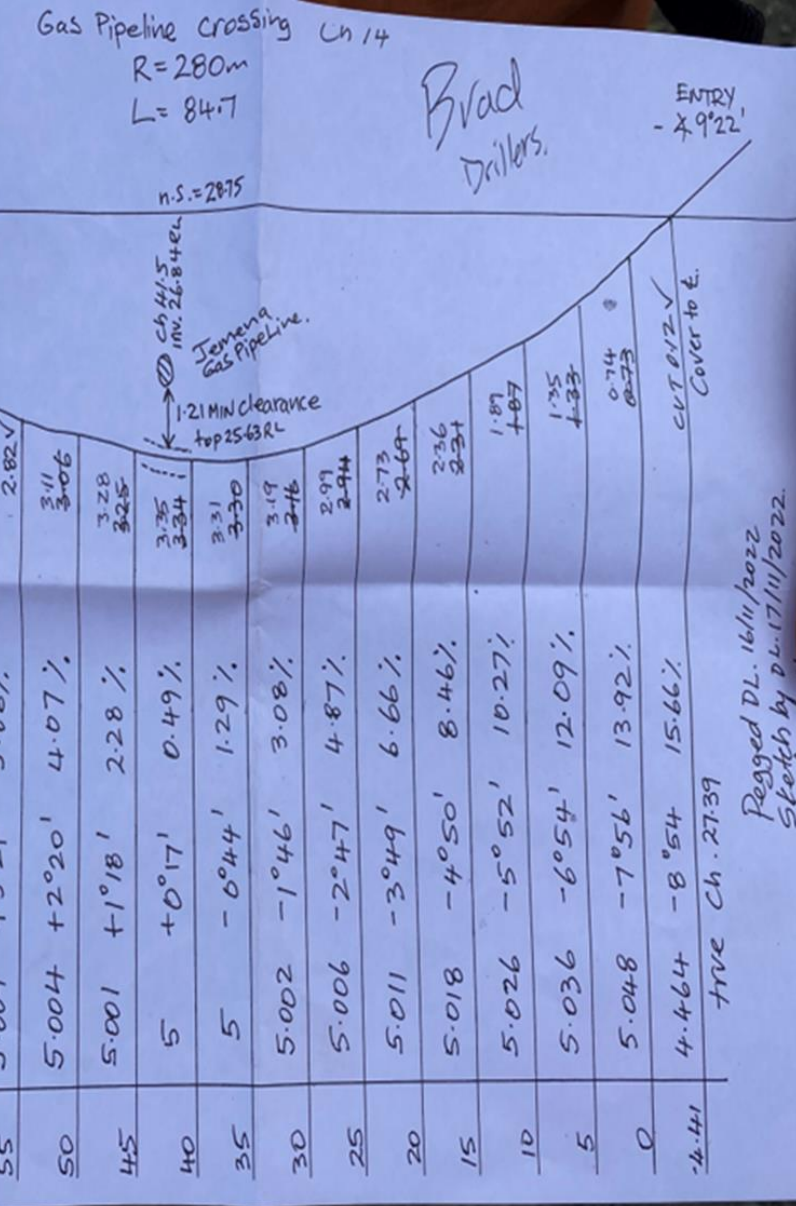 Gas Pipeline Crossing Ch 14
R=280m
L= 84.7
Brad
Drillers.
ENTRY
- ∡ 9°22'
n.s.= 28.75
Ch 41.5
inv. 26.84 RL
Jemena
Gas Pipeline.
1.21 MIN clearance
top 25.63 RL
55 2.82 ✓
50 5.004 +2°20' 4.07% 3.11 3.06
45 5.001 +1°18' 2.28% 3.28 3.25
40 5 +0°17' 0.49% 3.35 3.34
35 5 -0°44' 1.29% 3.31 3.30
30 5.002 -1°46' 3.08% 3.19 3.16
25 5.006 -2°47' 4.87% 2.99 2.94
20 5.011 -3°49' 6.66% 2.73 2.69
15 5.018 -4°50' 8.46% 2.36 2.31
10 5.026 -5°52' 10.27% 1.89 1.87
5 5.036 -6°54' 12.09% 1.35 1.33
0 5.048 -7°56' 13.92% 0.74 0.73
-4.41 4.464 -8°54 15.66% CUT 0.12 ✓
Cover to ₵.
true Ch. 27.39
Pegged DL. 16/11/2022
Sketch by DL. 17/11/2022.